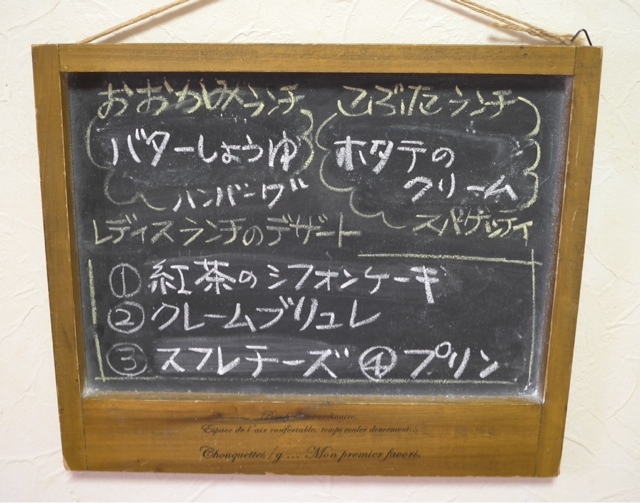 おおかみランチ
バターしょうゆ
ハンバーグ
こぶたランチ
ホタテの
クリーム
スパゲッティ
レディスランチのデザート
① 紅茶のシフォンケーキ
② クレームブリュレ
③ スフレチーズ ④ プリン
Espace de l'air confortable, temps couler doucement...
Chouquettes /g ... Mon premier favori.